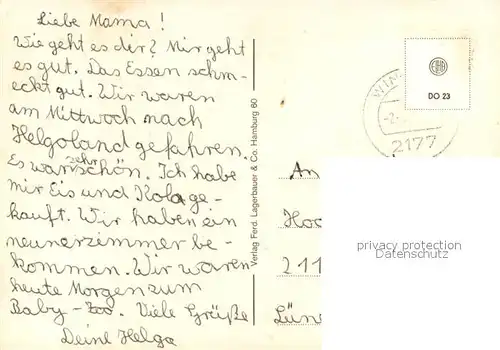 Liebe Mama!
Wie geht es dir? Mir geht
es gut. Das Essen schm-
eckt gut. Wir waren
am Mittwoch nach
Helgoland gefahren.
Es war sehr schön. Ich habe
mir Eis und Kola ge-
kauft. Wir haben ein
neunerzimmer be-
kommen. Wir waren
heute Morgen zum
Baby-Zoo. Viele Grüße
Deine Helga
Verlag Ferd. Lagerbauer & Co. Hamburg 60
DO 23
WIN
-2.
2177
An
Hoc
211
Lün
privacy protection
Datenschutz